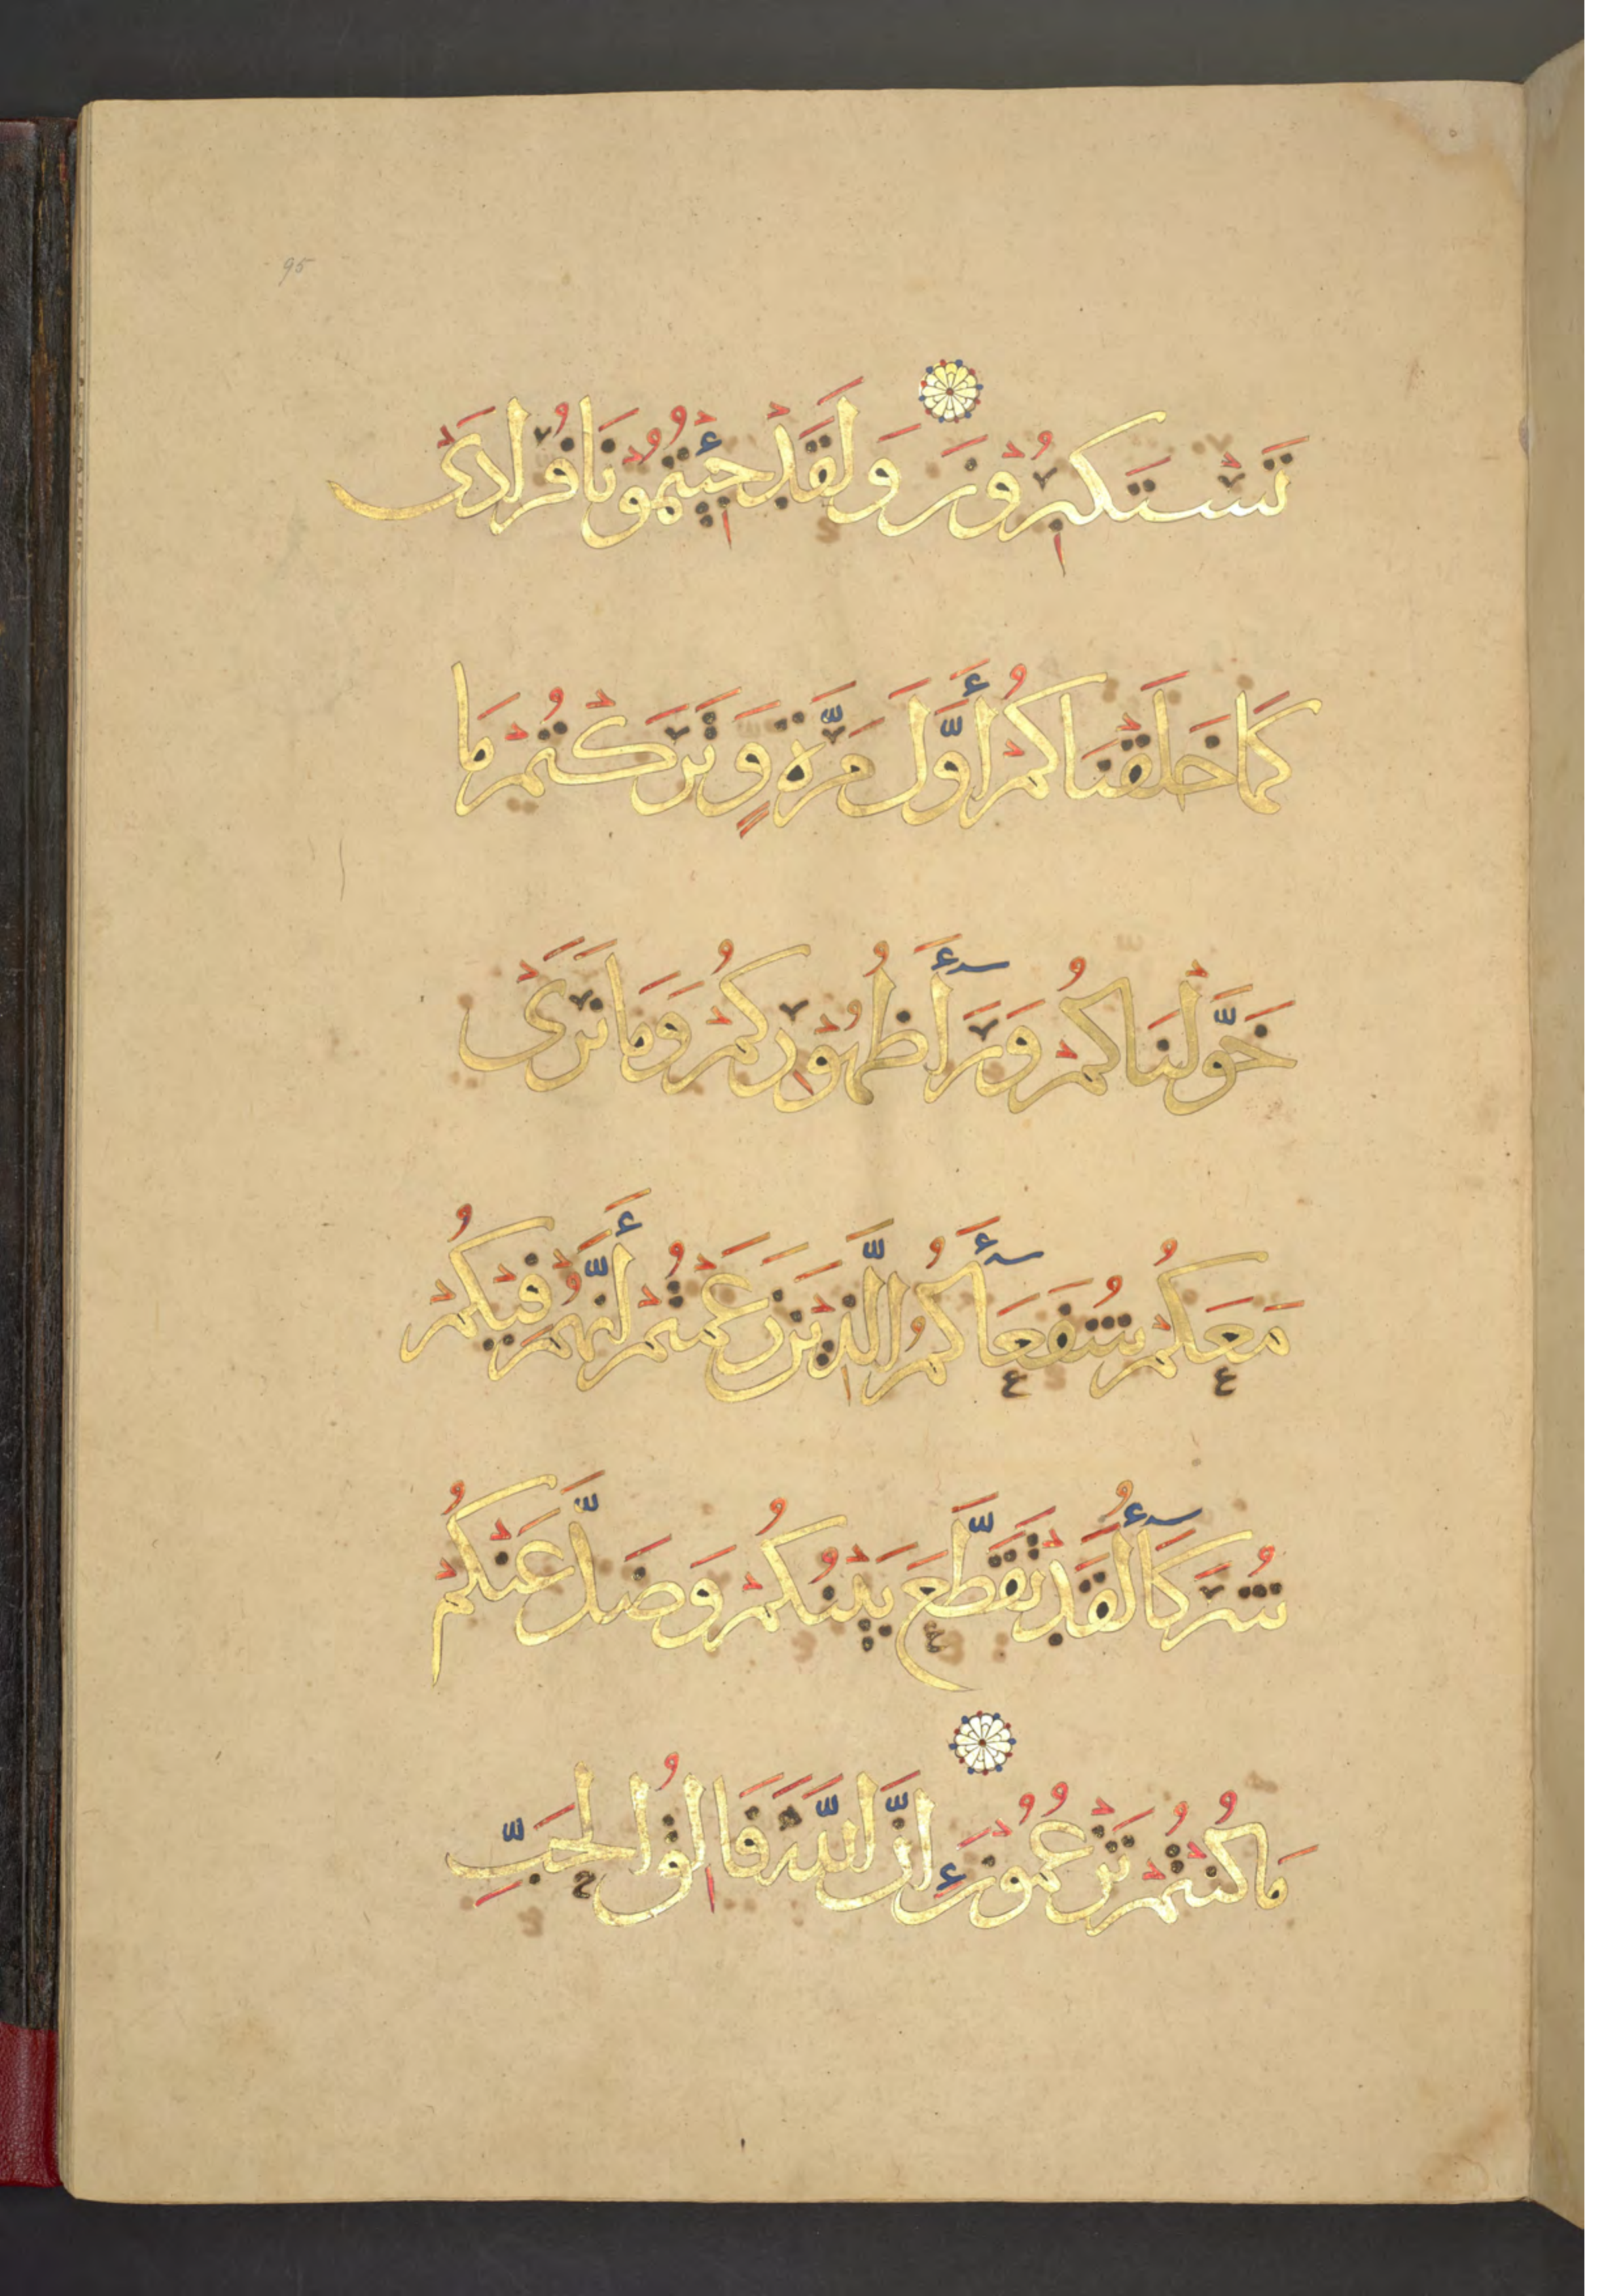 95
تَسْتَكْبِرُوْنَ وَلَقَدْ جِئْتُمُوْنَا فُرَادَىْ
كَمَا خَلَقْنَاكُمْ أَوَّلَ مَرَّةٍ وَتَرَكْتُمْ مَا
خَوَّلْنَاكُمْ وَرَآءَ ظُهُوْرِكُمْ وَمَا نَرَىْ
مَعَكُمْ شُفَعَآءَكُمُ الَّذِيْنَ زَعَمْتُمْ أَنَّهُمْ فِيْكُمْ
شُرَكَآءُ لَقَدْ تَقَطَّعَ بَيْنَكُمْ وَضَلَّ عَنْكُمْ
مَا كُنْتُمْ تَزْعُمُوْنَ إِنَّ اللَّهَ فَالِقُ الْحَبِّ